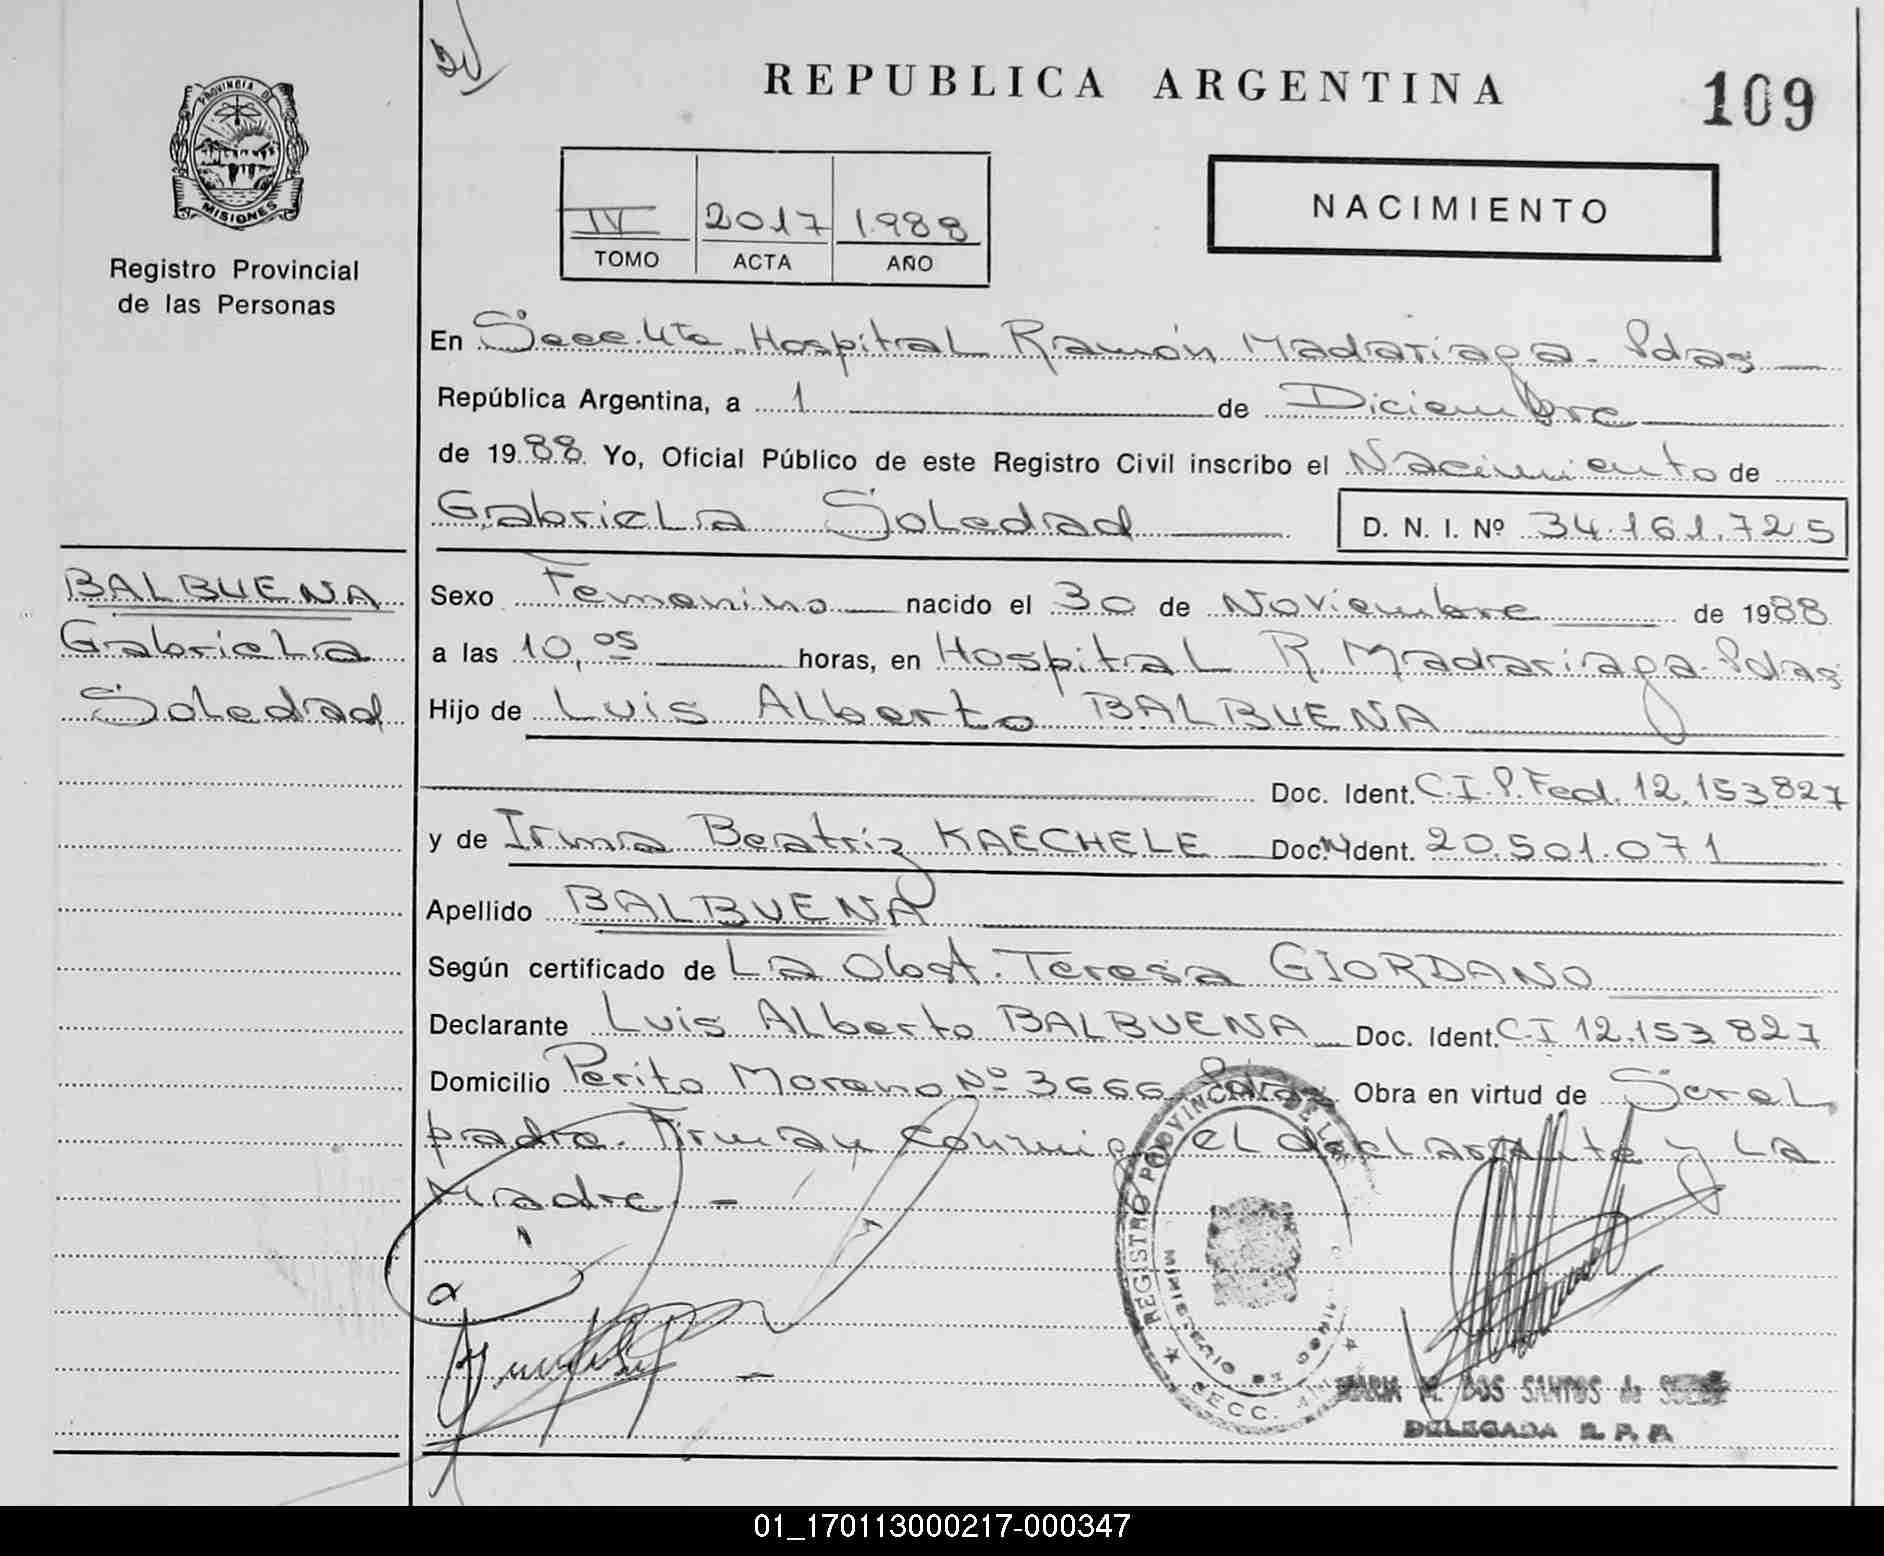 PROVINCIA DE
MISIONES
Registro Provincial
de las Personas
REPUBLICA ARGENTINA
109
IV 2017 1.988
TOMO ACTA AÑO
NACIMIENTO
En Secc. 4ta Hospital Ramón Madariaga - Pdas
República Argentina, a 1 de Diciembre
de 1988 Yo, Oficial Público de este Registro Civil inscribo el Nacimiento de
Gabriela Soledad D. N. I. Nº 34.161.725
BALBUENA
Gabriela
Soledad
Sexo Femenino nacido el 30 de Noviembre de 1988
a las 10,05 horas, en Hospital R. Madariaga - Pdas
Hijo de Luis Alberto BALBUENA
Doc. Ident. C.I.P.Fed. 12.153827
y de Irma Beatriz KAECHELE Doc. Ident. 20.501.071
Apellido BALBUENA
Según certificado de La Obst. Teresa GIORDANO
Declarante Luis Alberto BALBUENA Doc. Ident. C.I 12.153827
Domicilio Perito Moreno Nº 3666 Pdas Obra en virtud de Ser el
padre. Firman conmigo el declarante y la
Madre -
REGISTRO PROVINCIAL DE LAS
MINISTERIO DE
SECC.
MARIA DOS SANTOS de
DELEGADA R. P. P.
01_170113000217-000347